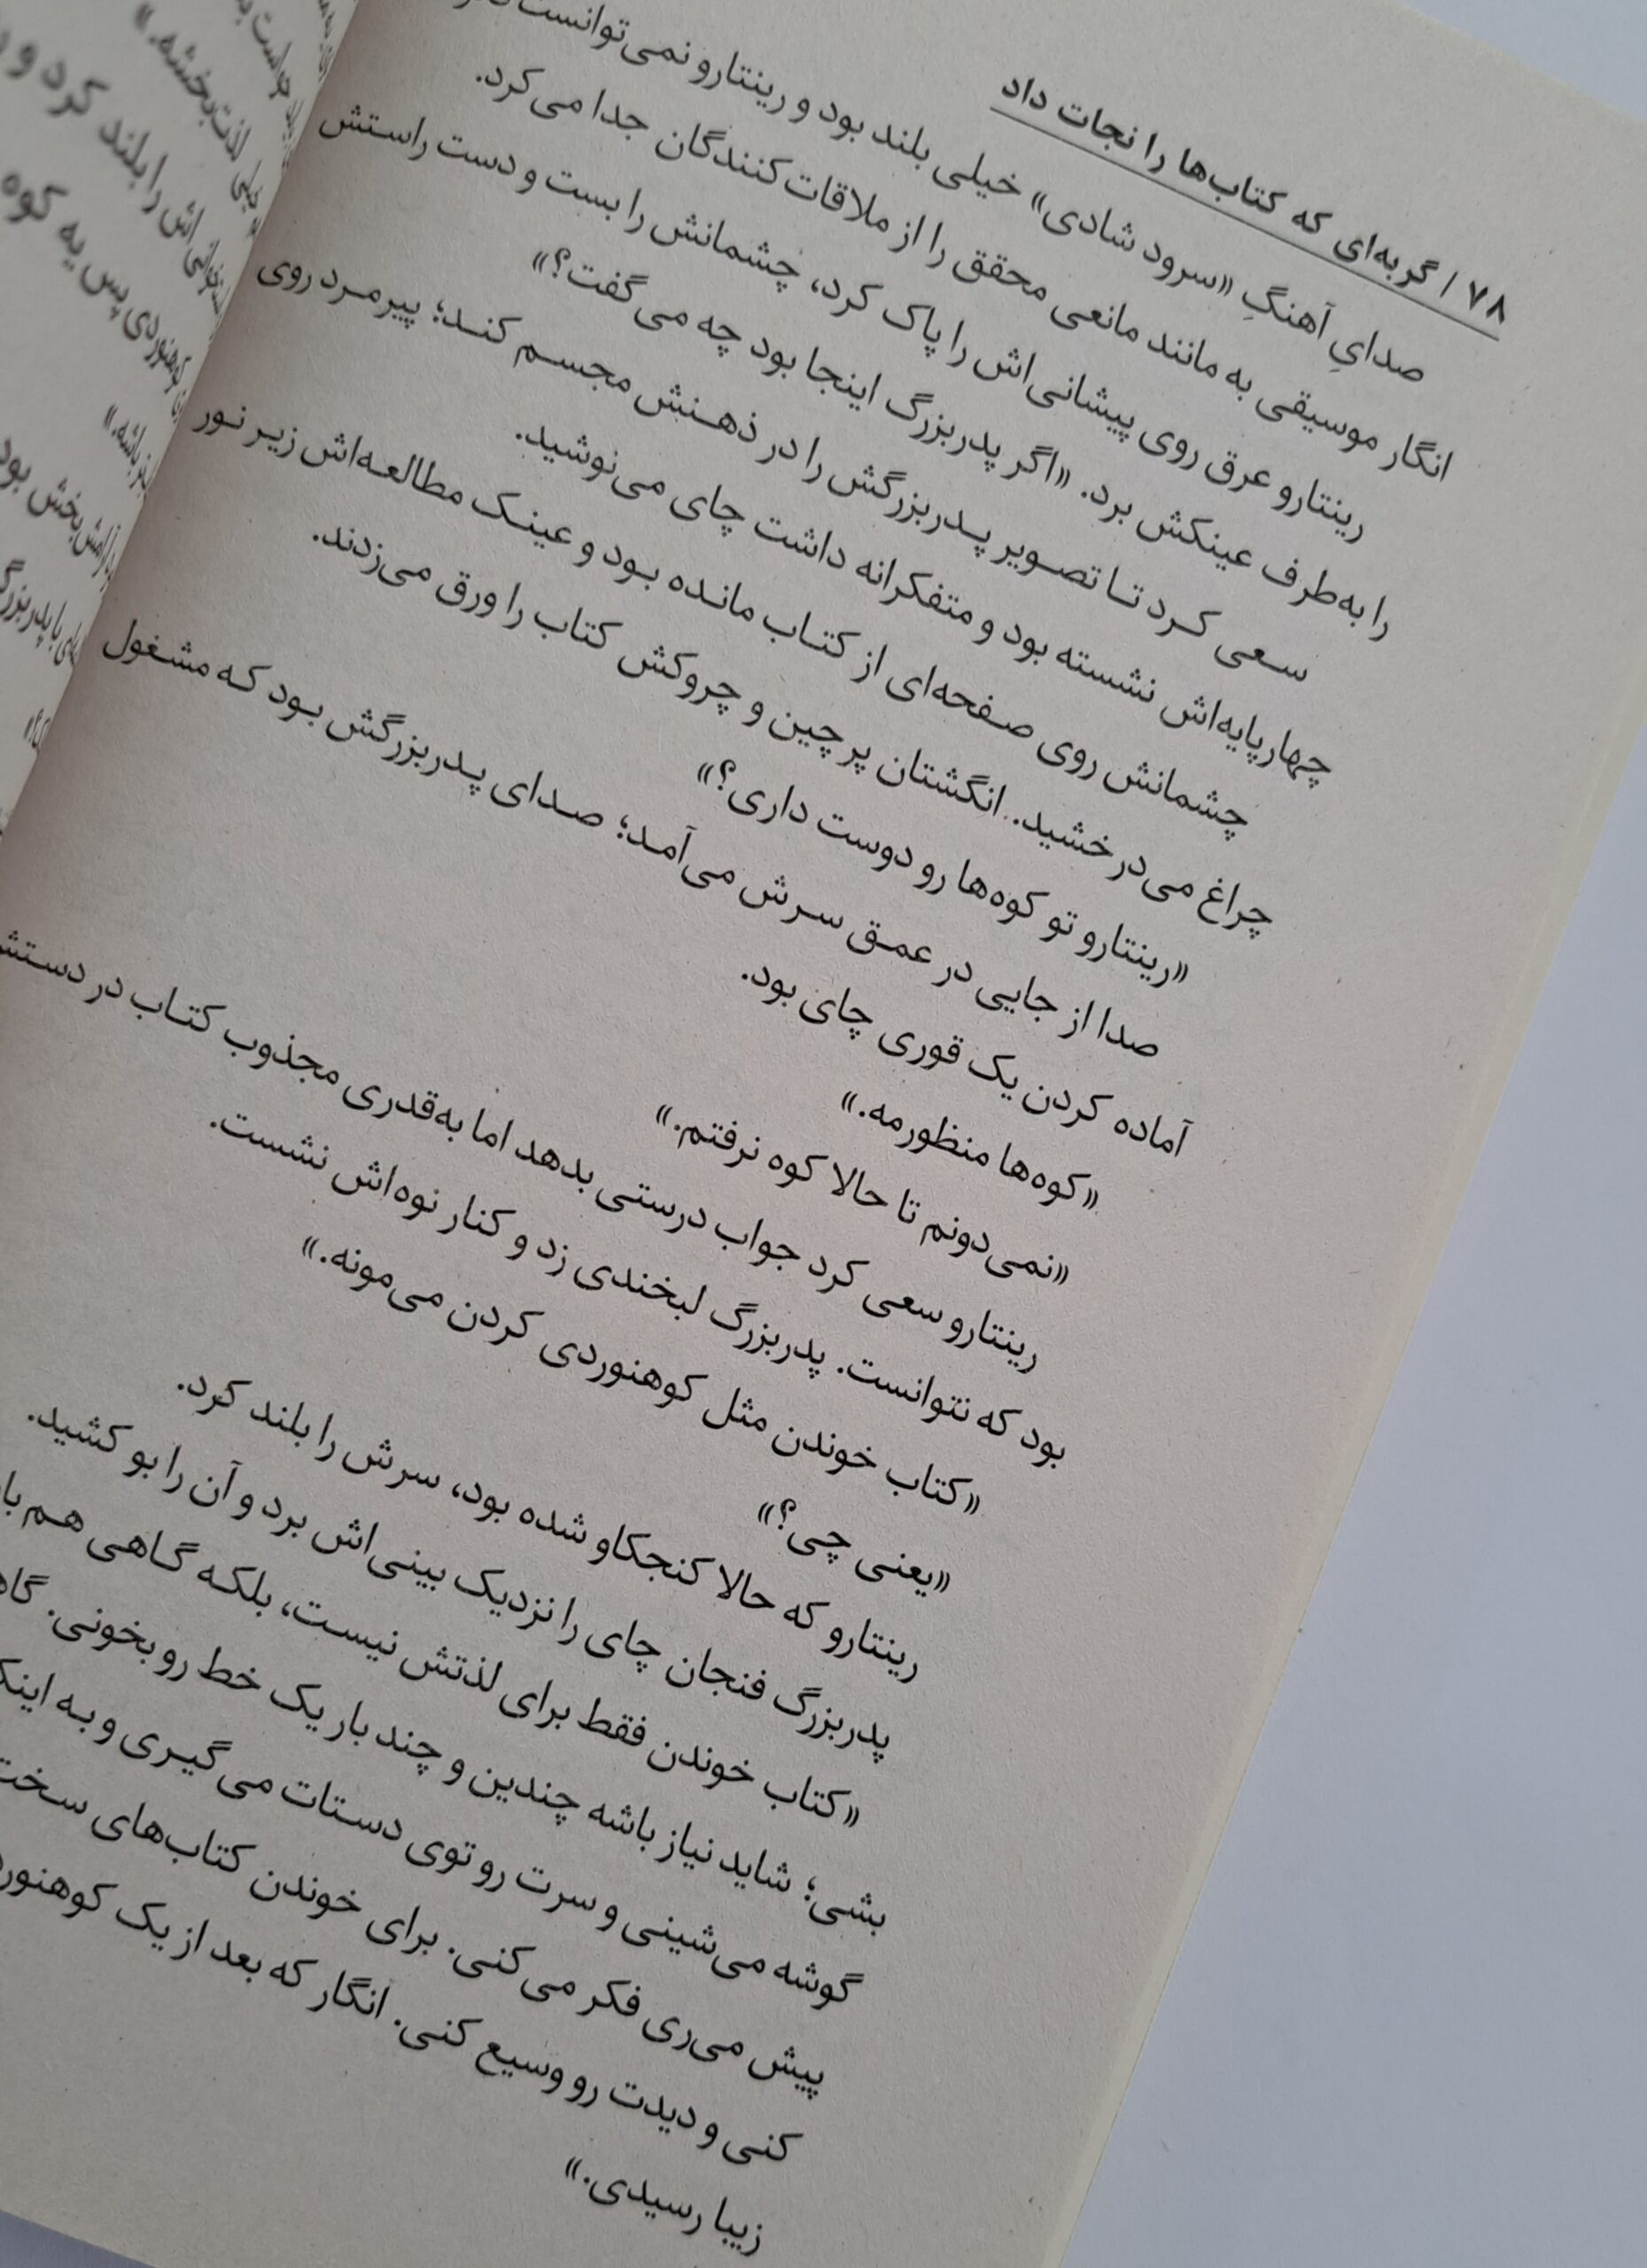 ۷۸ / گربه‌ای که کتاب‌ها را نجات داد
صدایِ آهنگِ «سرود شادی» خیلی بلند بود و رینتارو نمی‌توانست
انگار موسیقی به مانند مانعی محقق را از ملاقات‌کنندگان جدا می‌کرد.
رینتارو عرق روی پیشانی‌اش را پاک کرد، چشمانش را بست و دست راستش
را به‌طرف عینکش برد. «اگر پدربزرگ اینجا بود چه می‌گفت؟»
سعی کرد تا تصویر پدربزرگش را در ذهنش مجسم کند؛ پیرمرد روی
چهارپایه‌اش نشسته بود و متفکرانه داشت چای می‌نوشید.
چشمانش روی صفحه‌ای از کتاب مانده بود و عینک مطالعه‌اش زیر نور
چراغ می‌درخشید. انگشتان پرچین و چروکش کتاب را ورق می‌زدند.
«رینتارو تو کوه‌ها رو دوست داری؟»
صدا از جایی در عمق سرش می‌آمد؛ صدای پدربزرگش بود که مشغول
آماده کردن یک قوری چای بود.
«کوه‌ها منظورمه.»
«نمی‌دونم تا حالا کوه نرفتم.»
رینتارو سعی کرد جواب درستی بدهد اما به‌قدری مجذوب کتاب در دستش
بود که نتوانست. پدربزرگ لبخندی زد و کنار نوه‌اش نشست.
«کتاب خوندن مثل کوهنوردی کردن می‌مونه.»
«یعنی چی؟»
رینتارو که حالا کنجکاو شده بود، سرش را بلند کرد.
پدربزرگ فنجان چای را نزدیک بینی‌اش برد و آن را بو کشید.
«کتاب خوندن فقط برای لذتش نیست، بلکه گاهی هم
بشی؛ شاید نیاز باشه چندین و چند بار یک خط رو بخونی.
گوشه می‌شینی و سرت رو توی دستات می‌گیری و به
پیش می‌ری فکر می‌کنی. برای خوندن کتاب‌های سخت
کنی و دیدت رو وسیع کنی. انگار که بعد از یک
زیبا رسیدی.»